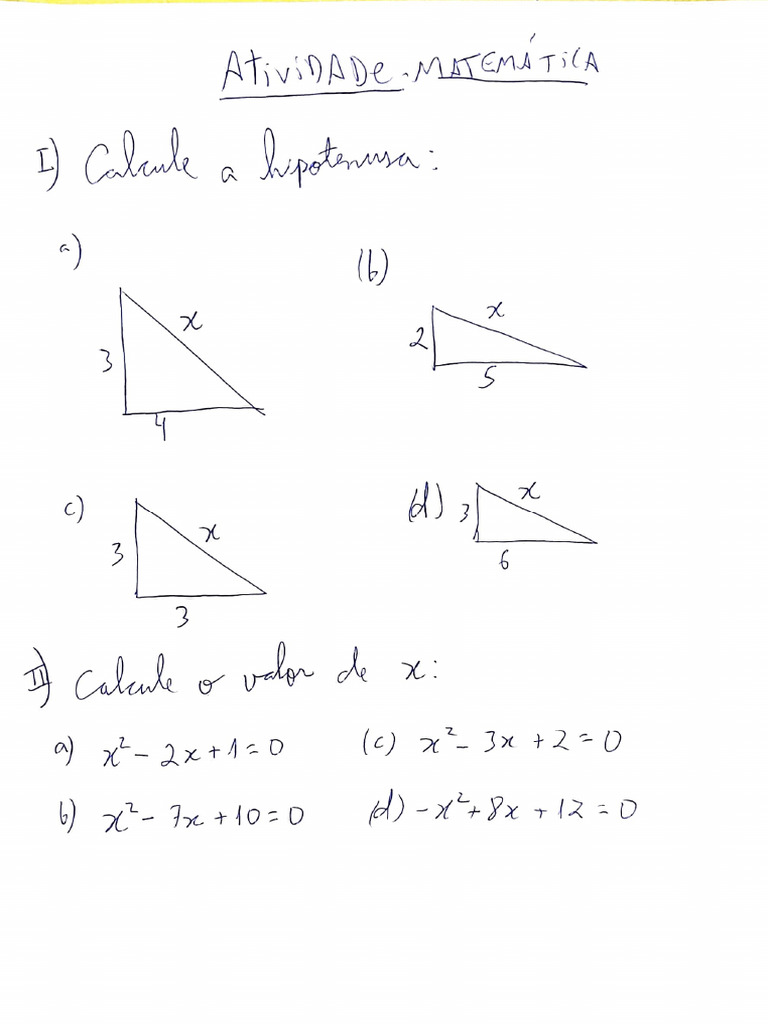 ATIVIDADE - MATEMÁTICA
I) Calcule a hipotenusa:
a) (b)
3 x 4
2 x 5
c) (d)
3 x 3
3 x 6
II) Calcule o valor de x:
a) x² - 2x + 1 = 0 (c) x² - 3x + 2 = 0
b) x² - 7x + 10 = 0 (d) -x² + 8x + 12 = 0